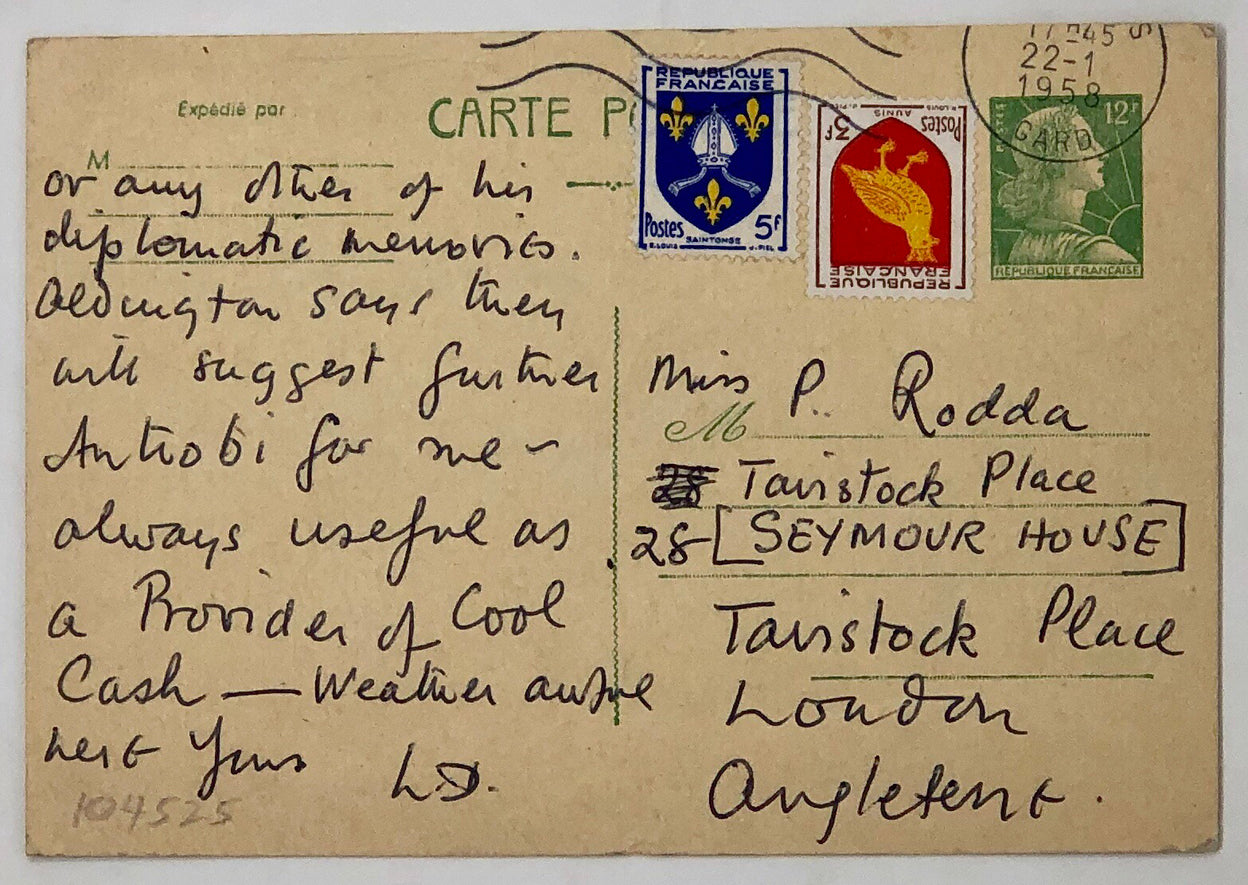 Expédié par
CARTE PO
M
or any other of his
diplomatic memories.
Aldington says they
will suggest further
Antiobi for me –
always useful as
a Provider of Cool
Cash — Weather awful
here Yours LD.
104525
REPUBLIQUE
FRANÇAISE
Postes 5F
R.LOUIS SAINTONGE J.PIEL
R.LOUIS AUNIS J.PIEL
Postes 3F
REPUBLIQUE
FRANÇAISE
17H45 S
22-1
1958
GARD
POSTES 12F
REPUBLIQUE FRANÇAISE
Miss P. Rodda
M
28 Tavistock Place
28 [SEYMOUR HOUSE]
Tavistock Place
London
Angleterre.